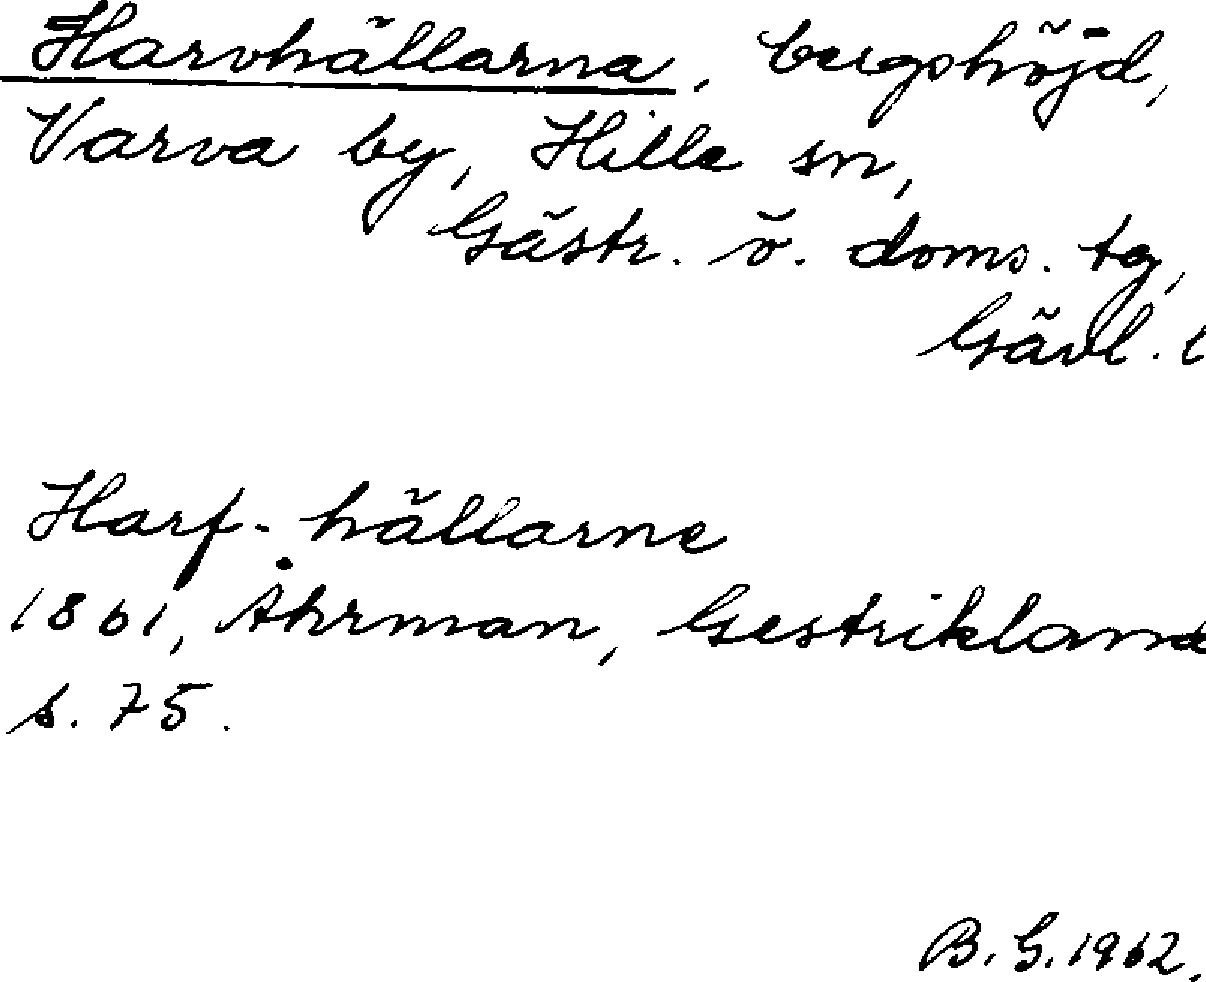 Harvhällarna, bergshöjd,
Varva by, Hille sn,
Gästr. ö. doms. tg,
Gävl. l
Harf-hällarne
1861, Åhrman, Gestrikland
s. 75.
B. G. 1962.